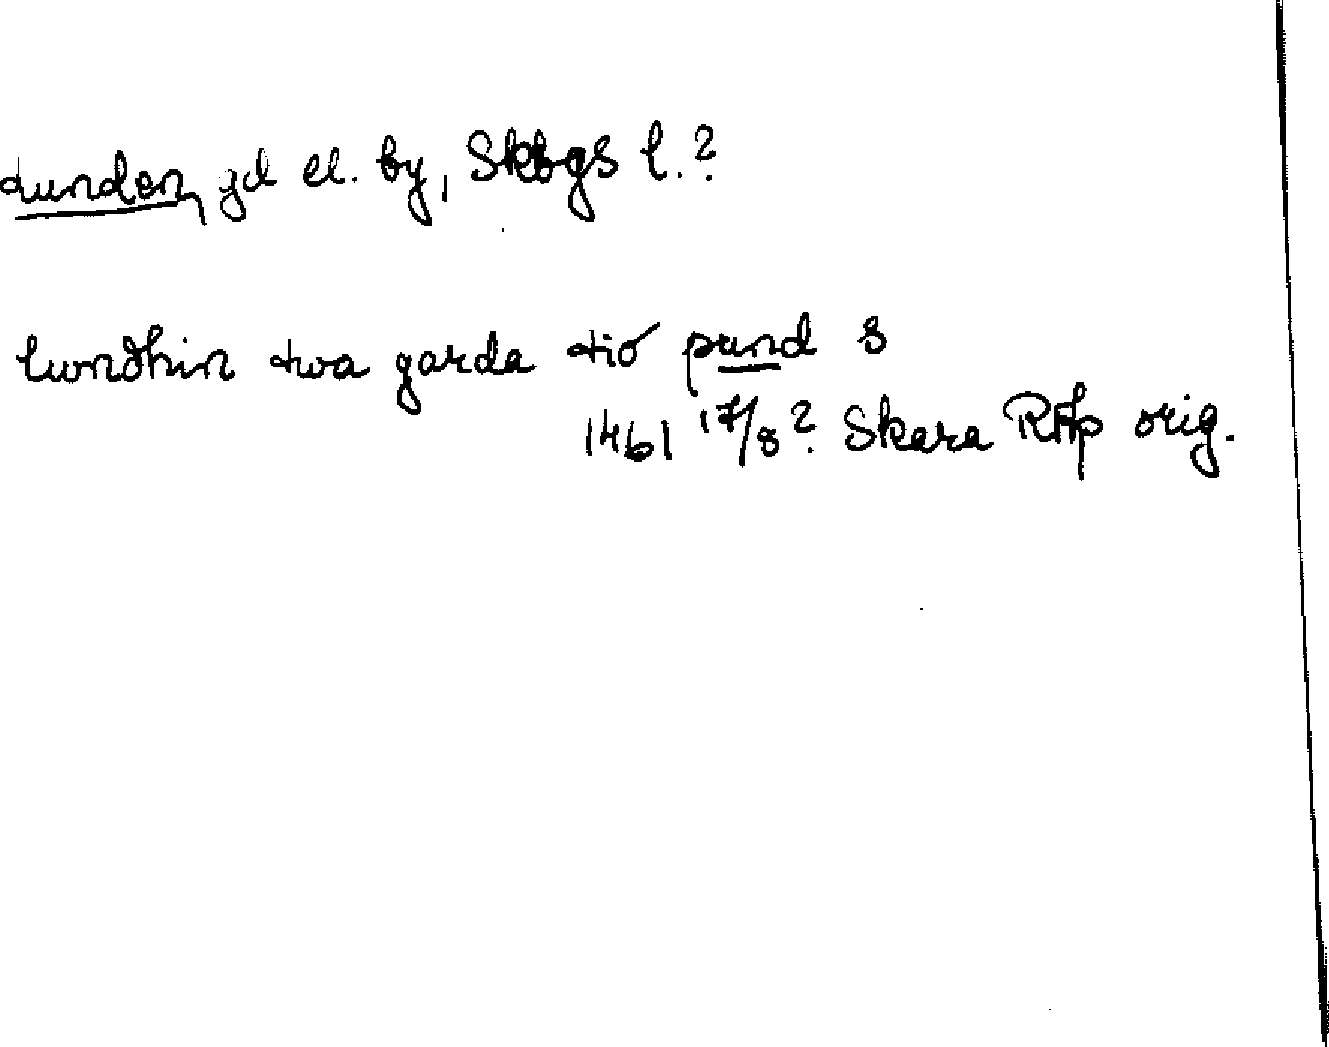 Lunden, gd el. by, Skogs l.?
lundhin twa garda tio pund 3
1461 17/8? Skara RAp orig.